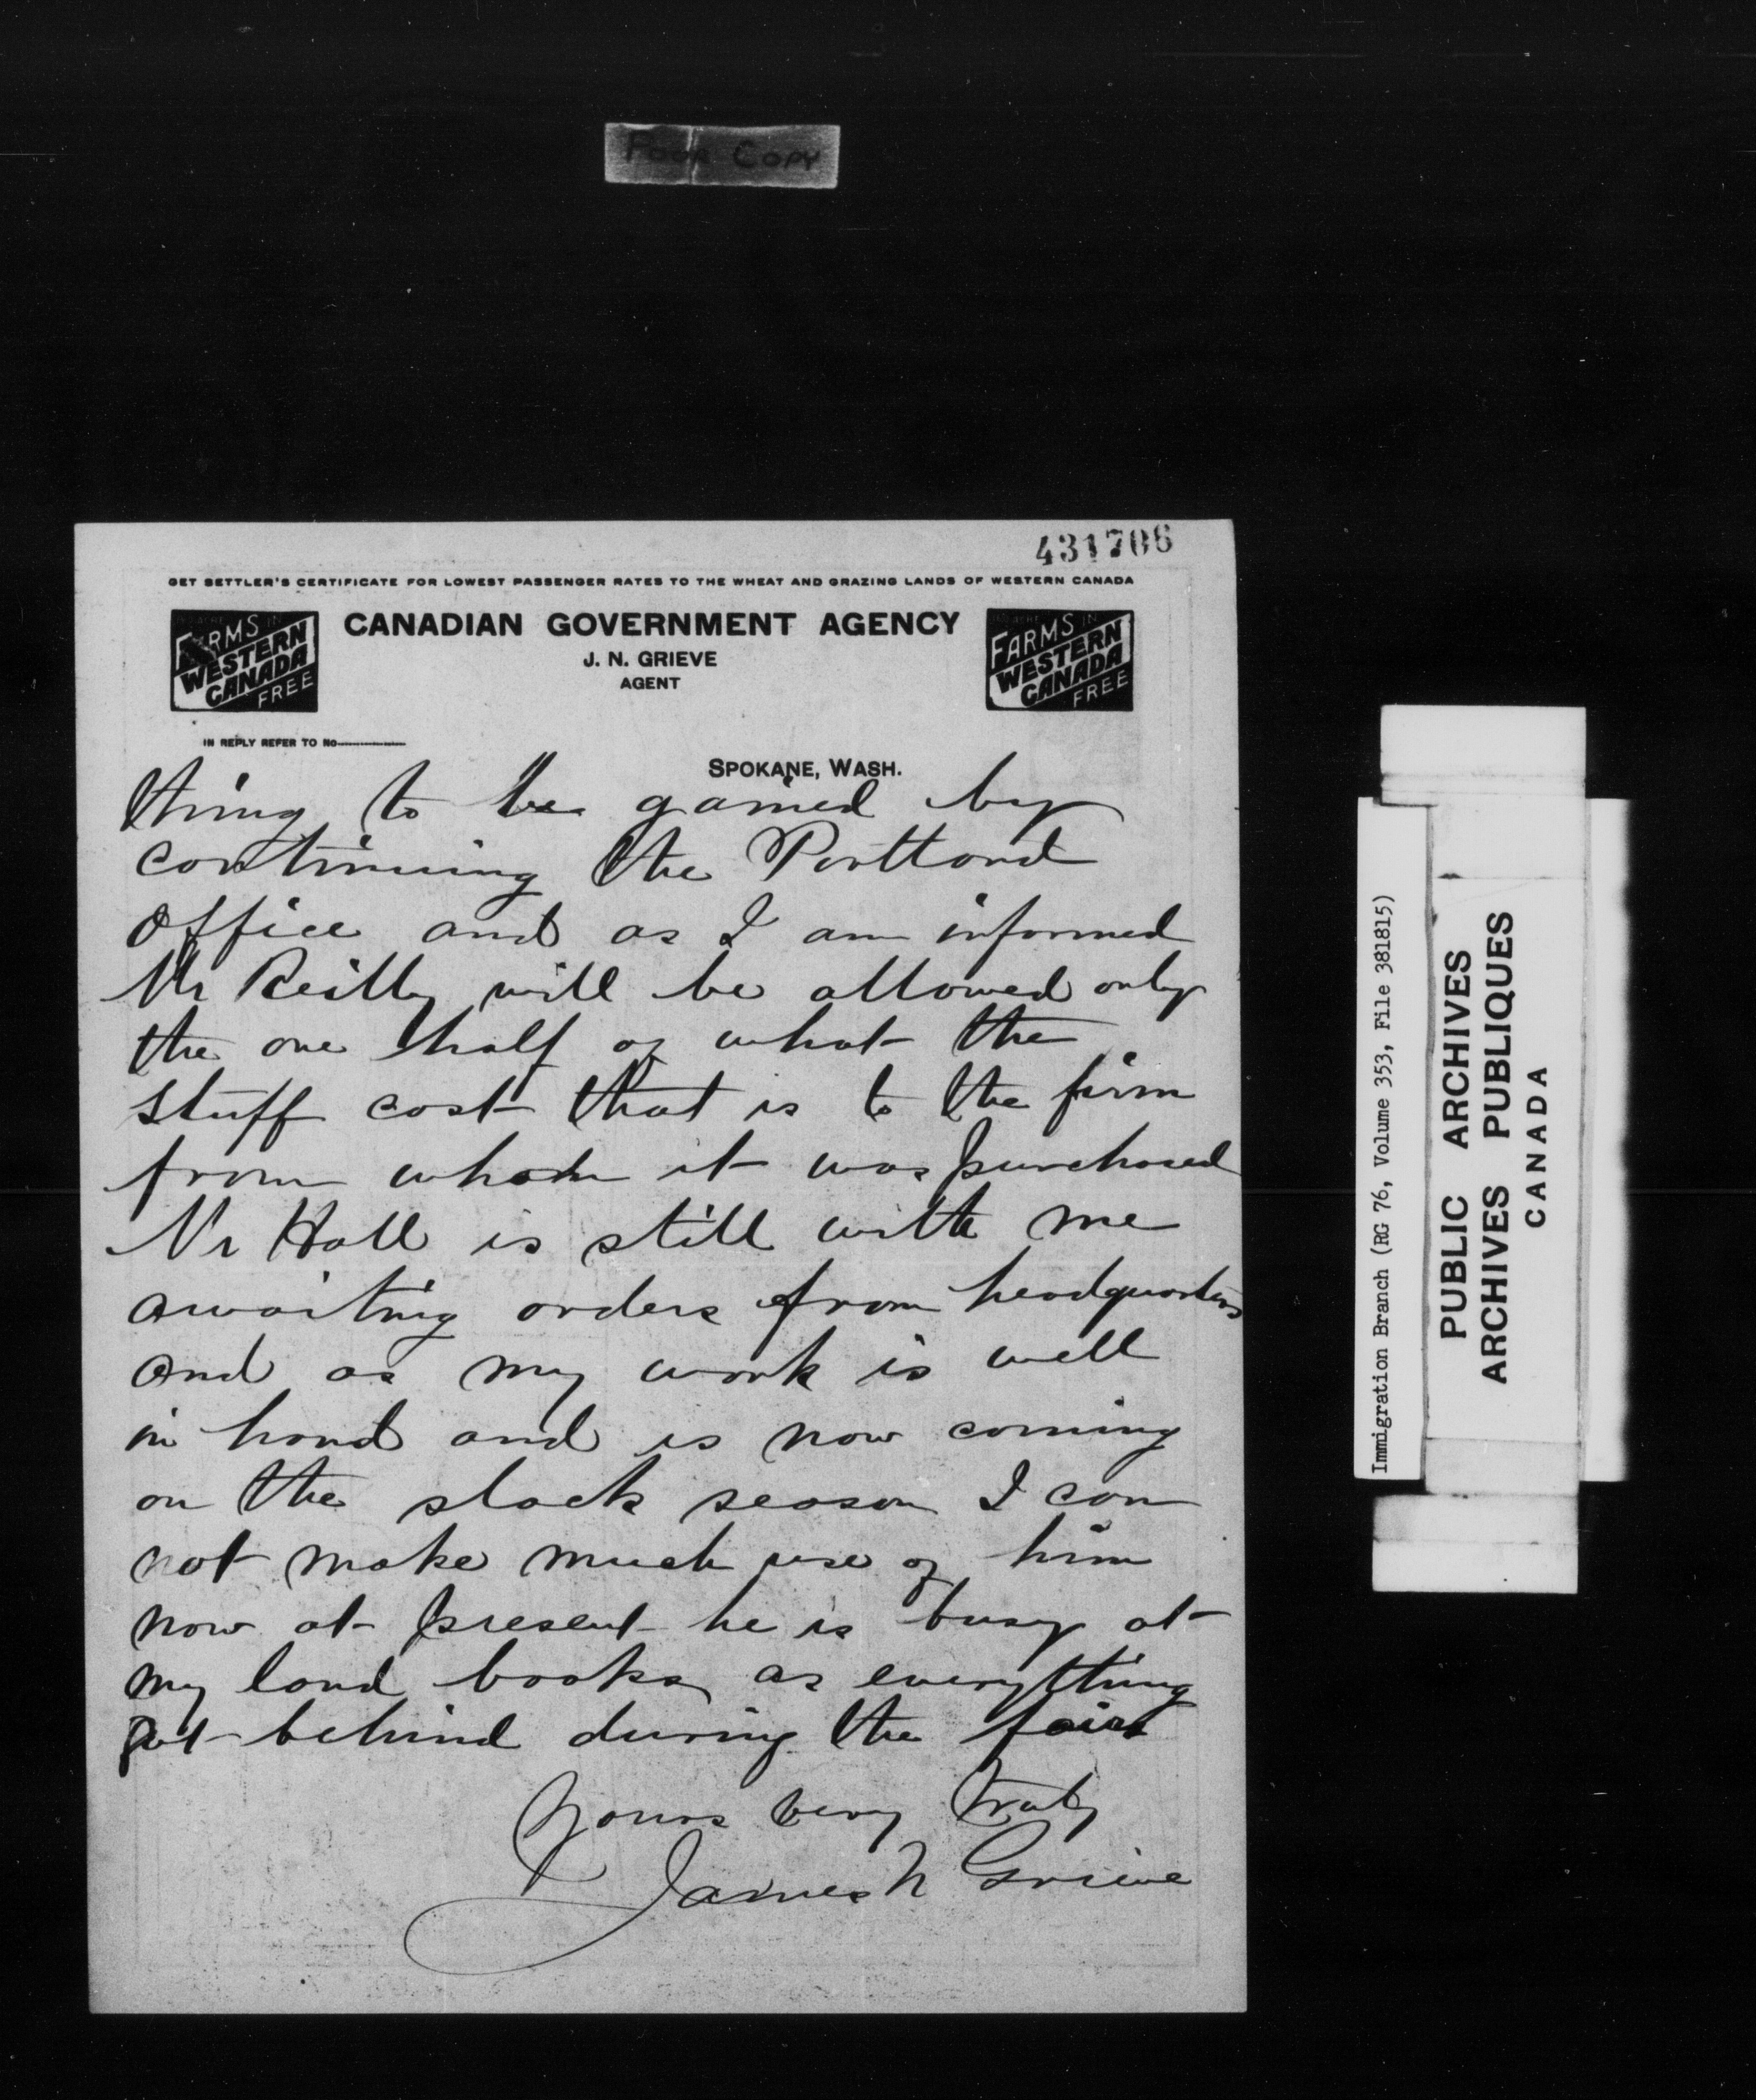 Poor Copy
431706
GET SETTLER'S CERTIFICATE FOR LOWEST PASSENGER RATES TO THE WHEAT AND GRAZING LANDS OF WESTERN CANADA
FARMS IN
WESTERN
CANADA
FREE
CANADIAN GOVERNMENT AGENCY
J. N. GRIEVE
AGENT
FARMS IN
WESTERN
CANADA
FREE
IN REPLY REFER TO NO
SPOKANE, WASH.
thing to be gained by
continuing the Portland
office and as I am informed
Mr Reilly will be allowed only
the one half of what the
stuff cost that is to the firm
from whom it was purchased
Mr Hall is still with me
awaiting orders from headquarters
and as my work is well
in hand and is now coming
on the slack season I can
not make much use of him
now at present he is busy at
my land books as everything
got behind during the fair
Yours very truly
James N Grieve
Immigration Branch (RG 76, Volume 353, File 381815)
PUBLIC ARCHIVES
ARCHIVES PUBLIQUES
CANADA